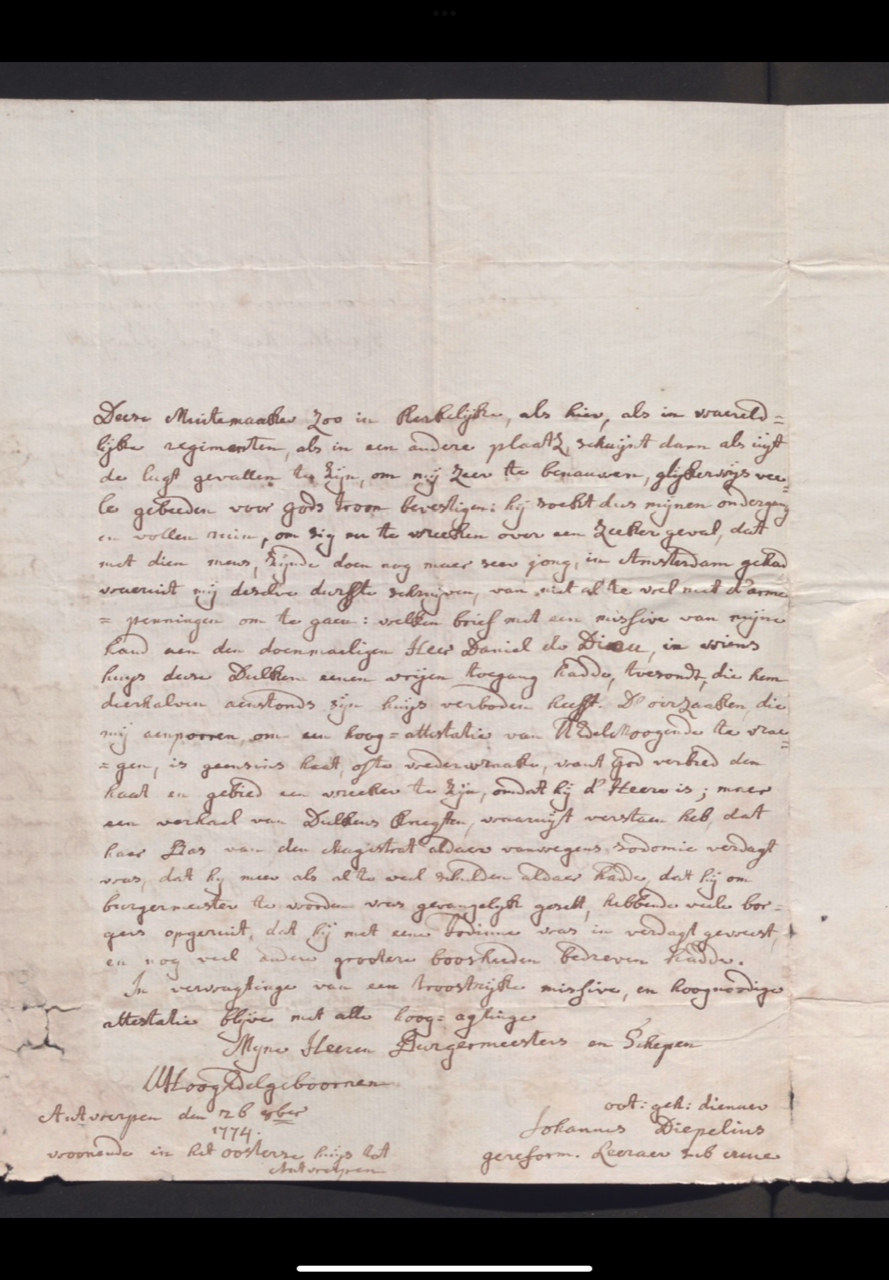 Deese Muitemaaker zoo in kerkelijke, als hier, als in waereld=
lijke regimenten, als in een andere plaatz, schijnt dann als uijt
de lugt gevallen te zijn, om mij zeer te benauwen, glijkerwijs vee=
le gebeeden voor gods troon bevestigen: hij soekt dus mijnen ondergang
en vollen ruin, om sig nu te wreeken over een zeeker geval, dat
met dien mens, zijnde doen nog maer seer jong, in Amsterdam gehad
waeruit mij deselve durfte schrijven, van niet al te veel met d'arme
= penningen om te gaen: welken brief met een missive van mijne
hand aen den doenmaeligen Heer Daniel de Dieu, in wiens
huys deese Dulken eenen vrijen toegang hadde, toesondt, die hem
dierhalven aenstonds zijn huijs verboden heeft. D'oirzaaken, die
mij aenporren, om een hoog=attestatie van UEdelHoogende te vrae=
= gen, is geensins haet, ofte wederwraake, want god verbied den
haat en gebied een wreeker te zijn, omdat hij d'Heere is; maer
een verhael van Dulkens knegten, waeruijt verstaen heb, dat
haer Bas van den Magistrat aldaer vanwegens sodomie verdagt
was, dat hij meer als al te veel schulden aldaer hadde, dat hij om
burgermeester te worden was gevangelijk gesett, hebbende veele bor=
gers opgeruit, dat hij met eene Jodinne was in verdagt geweest,
en nog veel andere grootere boosheeden bedreven hadde.
In verwagtinge van een troostrijke missive, en hoognoodige
attestatie blijve met alle hoog=agtinge
Mijne Heeren Burgermeesters en Schepen
UHoogEdelgeboornen
Antwerpen den 26 8ber
1774.
woonende in het oosterse huijs tot
Antwerpen
oot: geh: dienaer
Johannes Diepelius
gereform. Leeraer sub cruce